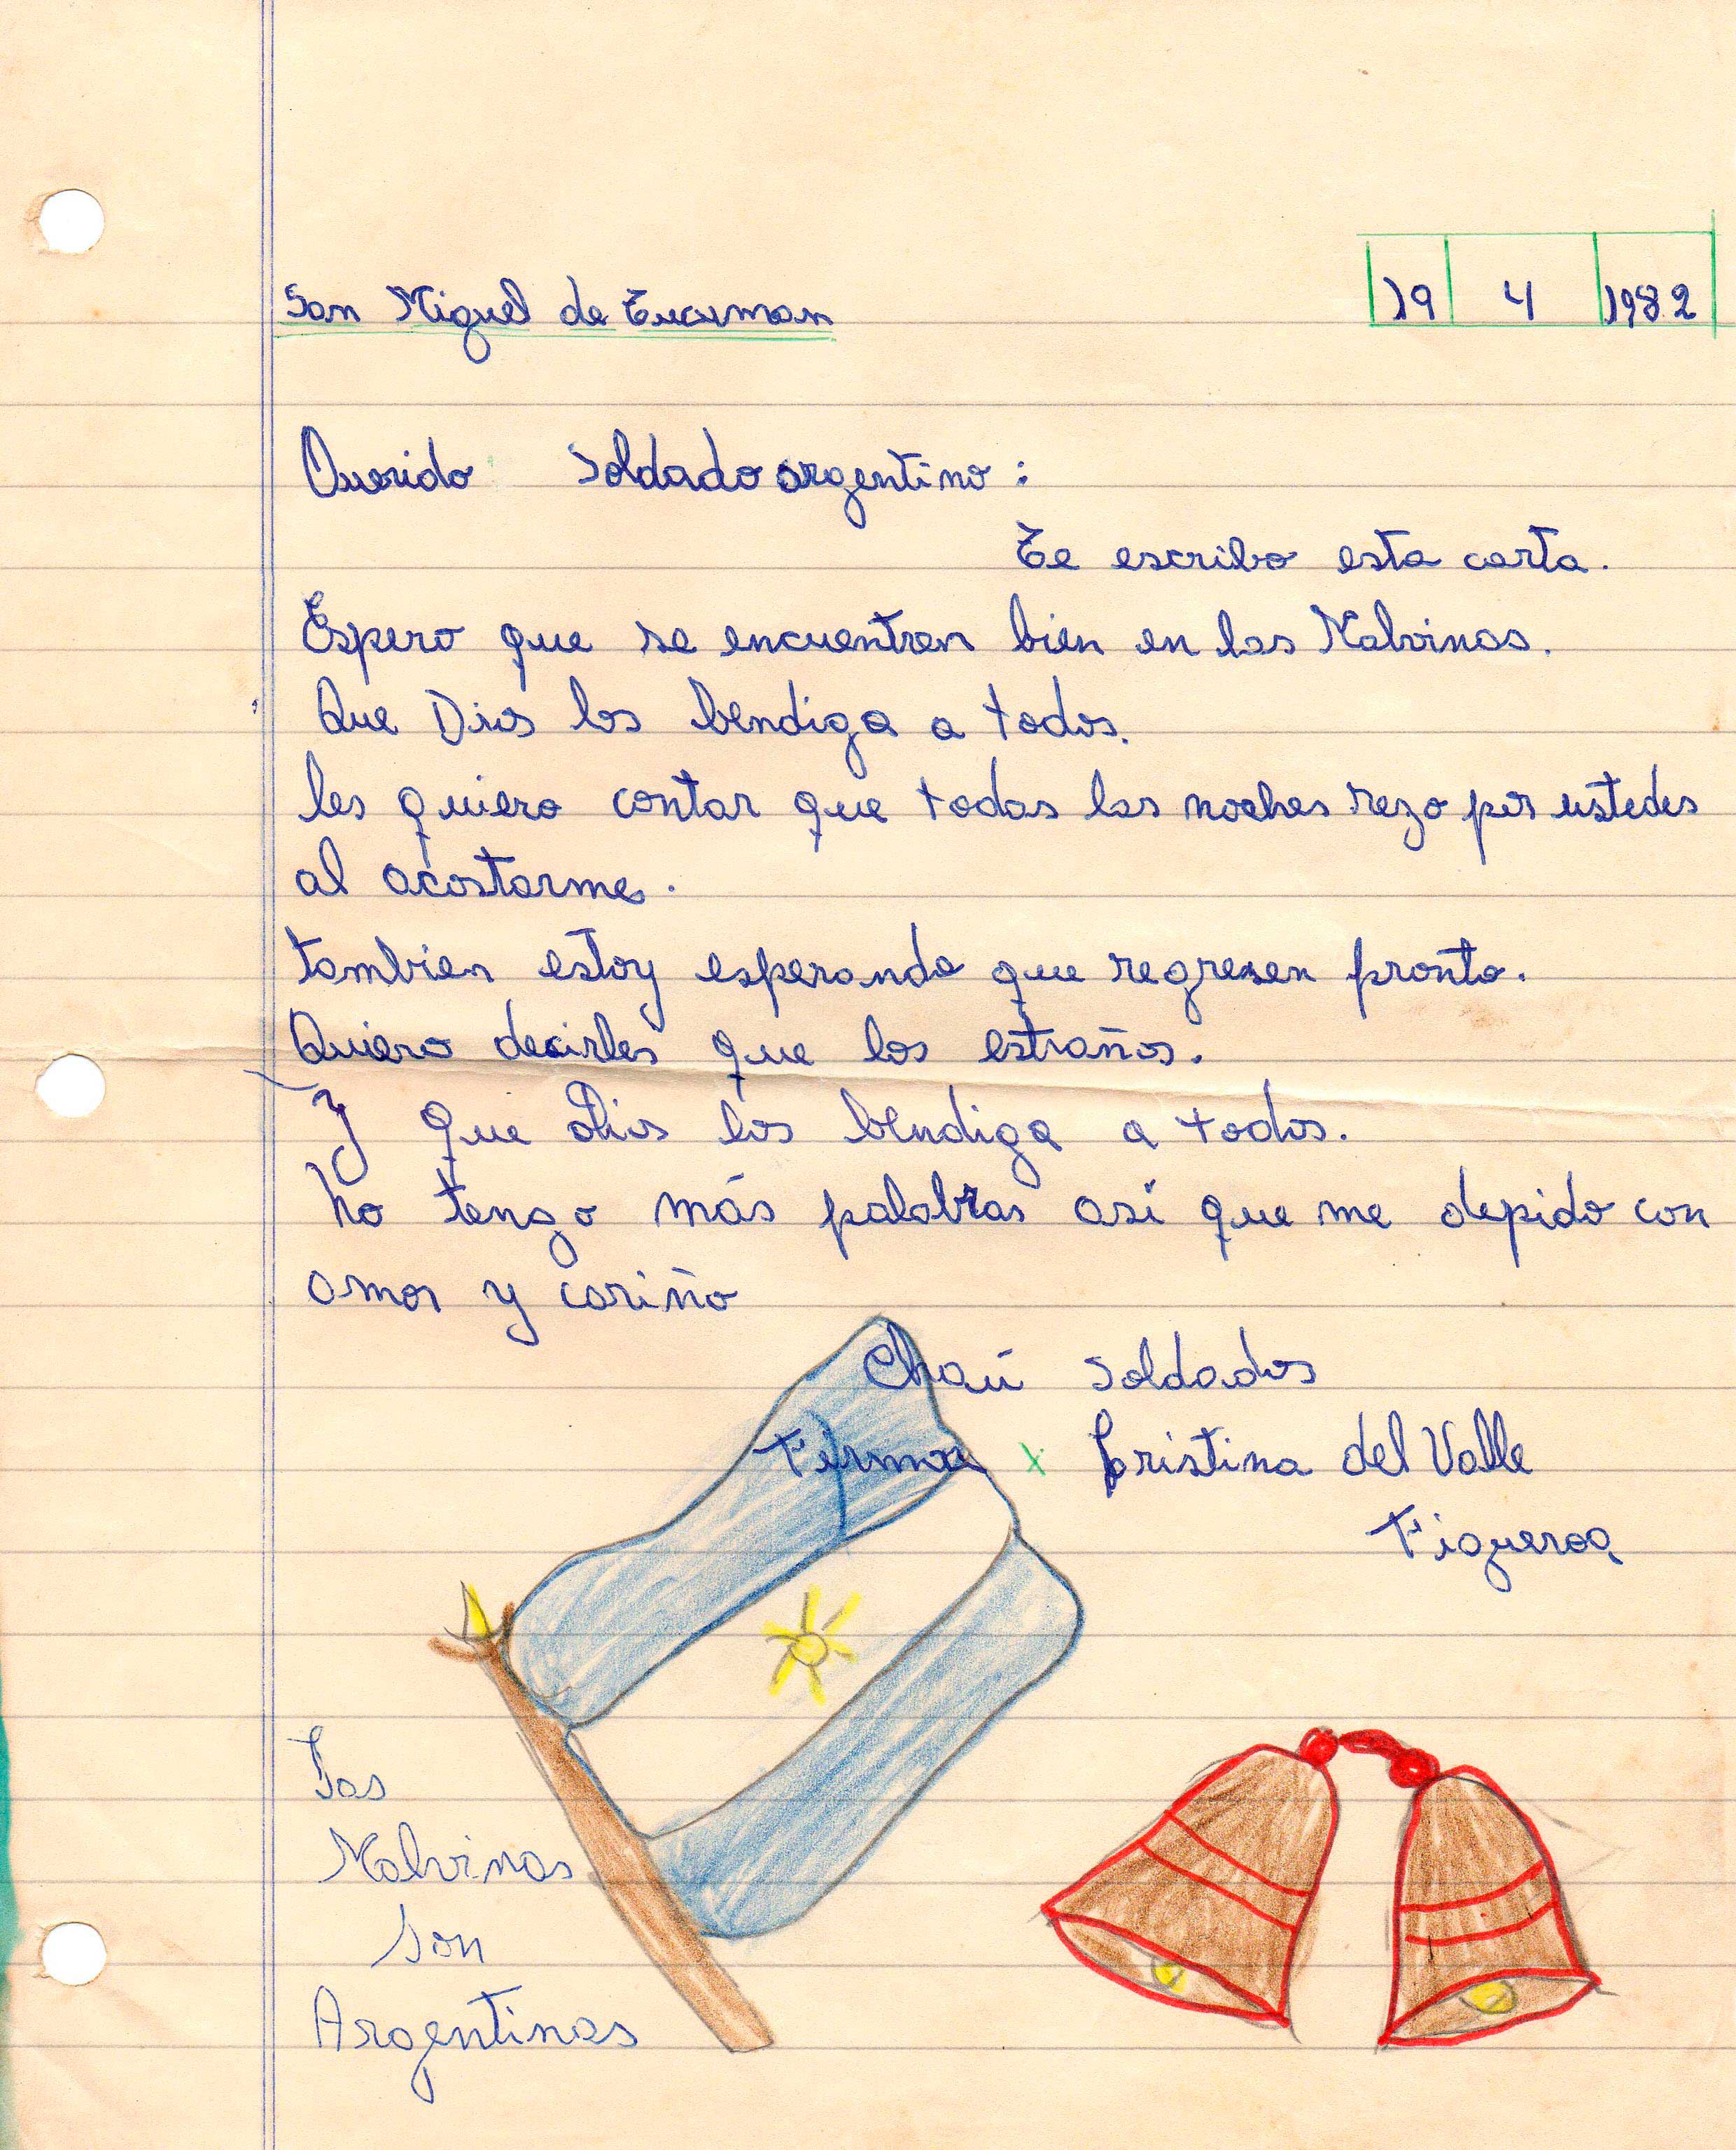 San Miguel de Tucuman
19 4 1982
Querido Soldado argentino:
Te escribo esta carta.
Espero que se encuentren bien en las Malvinas.
Que Dios los bendiga a todos.
les quiero contar que todas las noches rezo por ustedes
al acostarme.
tambien estoy esperando que regresen pronto.
Quiero decirles que los estraños.
Y que Dios los bendiga a todos.
no tengo más palabras así que me depido con
amor y cariño
Chaú soldados
Firma x Cristina del Valle
Figueroa
Las
Malvinas
son
Argentinas